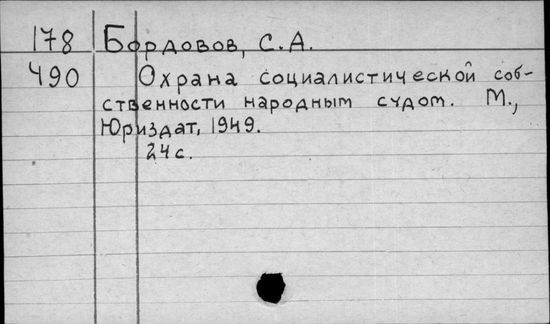 178 Бордовов, С.А.
490 Охрана социалистической соб-
ственности народным судом. М.,
Юриздат, 1949.
24 с.